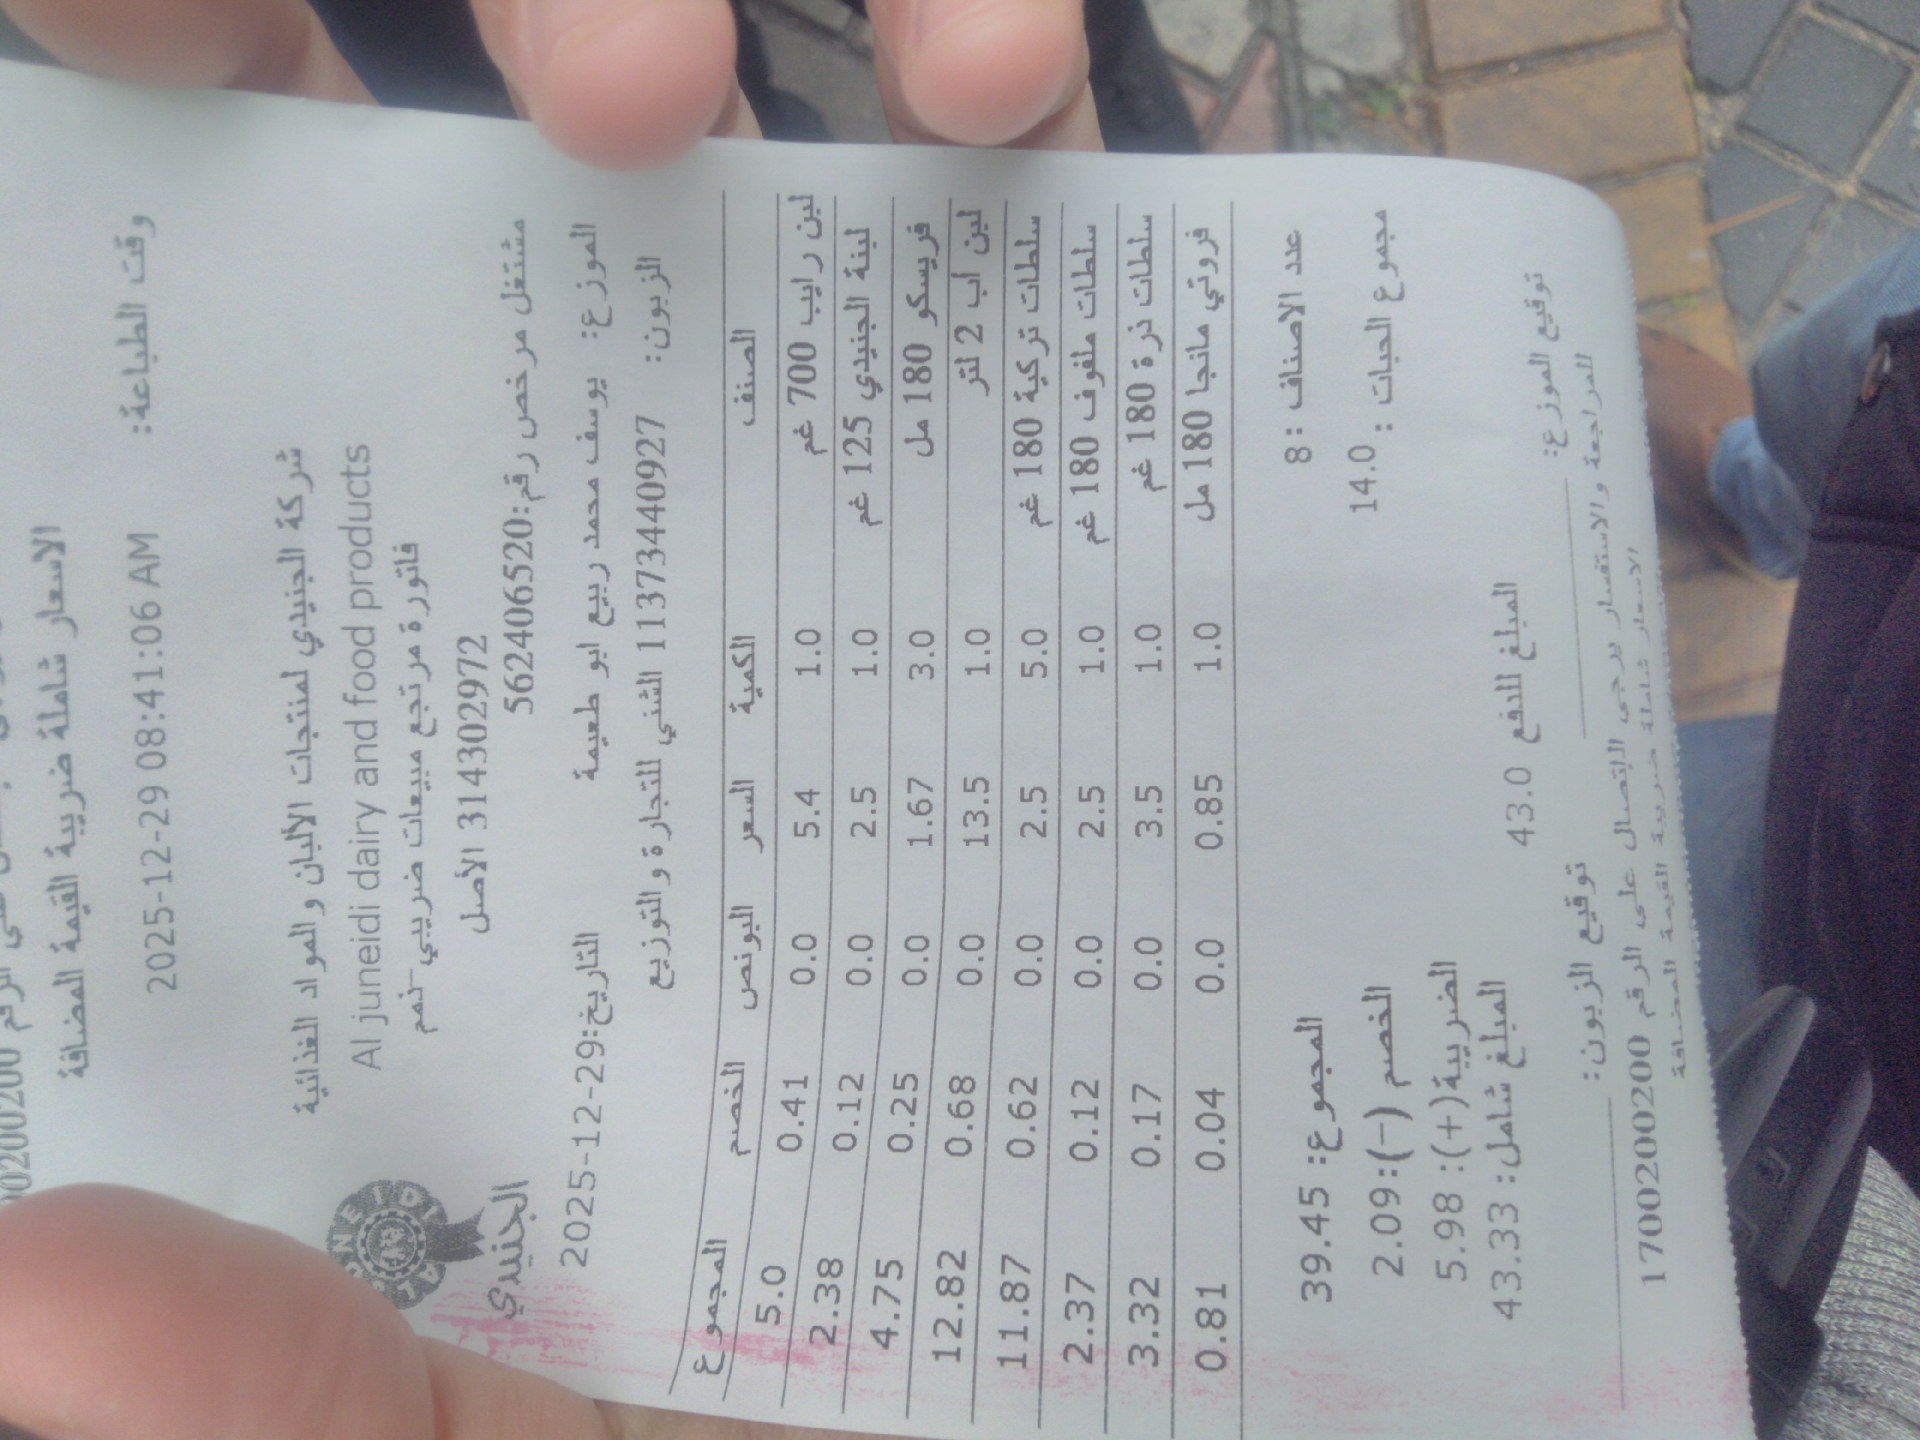 الرقم 1700200200
الاسعار شاملة ضريبة القيمة المضافة
وقت الطباعة: 2025-12-29 08:41:06 AM
شركة الجنيدي لمنتجات الألبان والمواد الغذائية
Al juneidi dairy and food products
فاتورة مرتجع مبيعات ضريبي-ذمم
314302972 الأصل
JUNEIDI
الجنيدي
مشتغل مرخص رقم:562406520
الموزع: يوسف محمد ربيع ابو طعيمة التاريخ:2025-12-29
الزبون: 11373440927 الشني للتجارة والتوزيع
الصنف الكمية السعر البونص الخصم المجموع
لبن رايب 700 غم 1.0 5.4 0.0 0.41 5.0
لبنة الجنيدي 125 غم 1.0 2.5 0.0 0.12 2.38
فريسكو 180 مل 3.0 1.67 0.0 0.25 4.75
لبن اب 2 لتر 1.0 13.5 0.0 0.68 12.82
سلطات تركية 180 غم 5.0 2.5 0.0 0.62 11.87
سلطات ملفوف 180 غم 1.0 2.5 0.0 0.12 2.37
سلطات ذرة 180 غم 1.0 3.5 0.0 0.17 3.32
فروتي مانجا 180 مل 1.0 0.85 0.0 0.04 0.81
عدد الاصناف : 8 المجموع: 39.45
مجموع الحبات : 14.0 الخصم (-): 2.09
الضريبة(+): 5.98
المبلغ للدفع 43.0 المبلغ شامل: 43.33
توقيع الموزع: توقيع الزبون:
للمراجعة والاستفسار يرجى الإتصال على الرقم 1700200200
الاسعار شاملة ضريبة القيمة المضافة